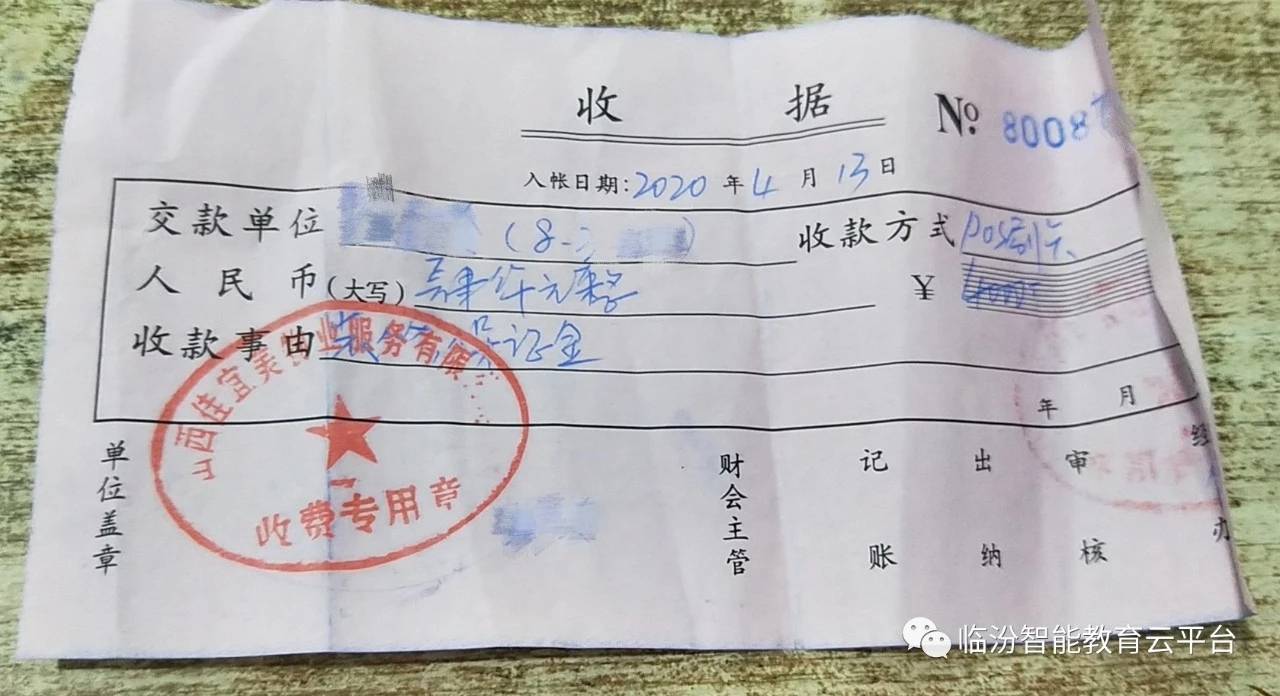 收 据 № 8008
入帐日期:2020年4月13日
交款单位 (8-2 ) 收款方式 POS刷卡
人民币(大写) 肆仟元整 ¥ 4000
收款事由 装修保证金
年 月
山西佳宜美物业服务有限
收费专用章
单位盖章 财会主管 记账 出纳 审核 经办
临汾智能教育云平台